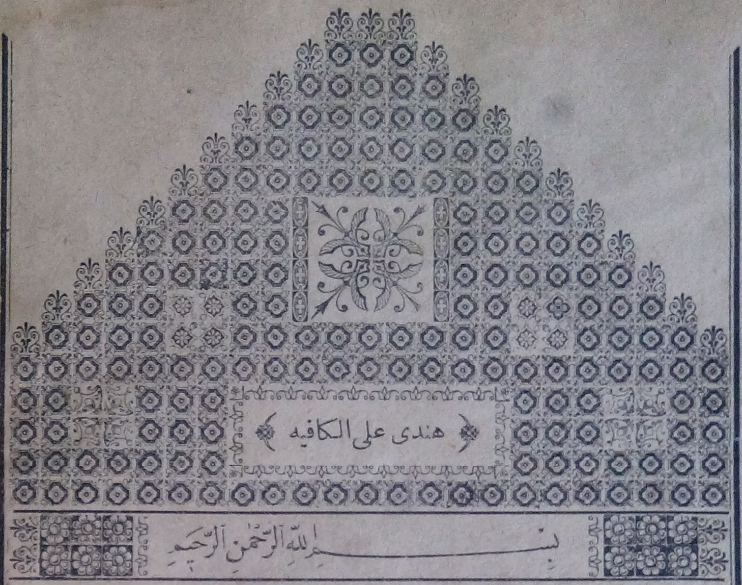 هندى على الكافيه
بِسْمِ اللّٰهِ الرَّحْمٰنِ الرَّحِيمِ